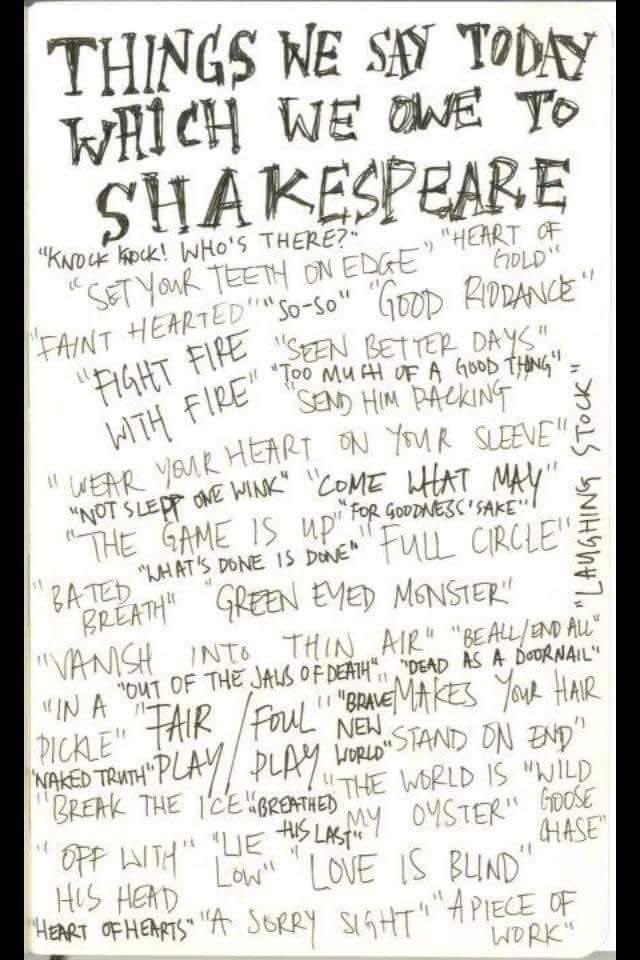 THINGS WE SAY TODAY
WHICH WE OWE TO
SHAKESPEARE
"KNOCK KNOCK! WHO'S THERE?" "HEART OF GOLD"
"SET YOUR TEETH ON EDGE"
"FAINT HEARTED" "SO-SO" "GOOD RIDDANCE"
"FIGHT FIRE WITH FIRE" "SEEN BETTER DAYS"
"TOO MUCH OF A GOOD THING"
"SEND HIM PACKING"
"LAUGHING STOCK"
"WEAR YOUR HEART ON YOUR SLEEVE"
"NOT SLEPT ONE WINK" "COME WHAT MAY"
"THE GAME IS UP" "FOR GOODNESS' SAKE"
"WHAT'S DONE IS DONE" "FULL CIRCLE"
"BATED BREATH" "GREEN EYED MONSTER"
"VANISH INTO THIN AIR" "BE ALL/END ALL"
"OUT OF THE JAWS OF DEATH" "DEAD AS A DOORNAIL"
"IN A PICKLE" "FAIR PLAY/FOUL PLAY" "BRAVE NEW WORLD" "MAKES YOUR HAIR STAND ON END"
"NAKED TRUTH" "THE WORLD IS MY OYSTER" "WILD GOOSE CHASE"
"BREAK THE ICE" "BREATHED HIS LAST"
"OFF WITH HIS HEAD" "LIE LOW" "LOVE IS BLIND"
"HEART OF HEARTS" "A SORRY SIGHT" "A PIECE OF WORK"